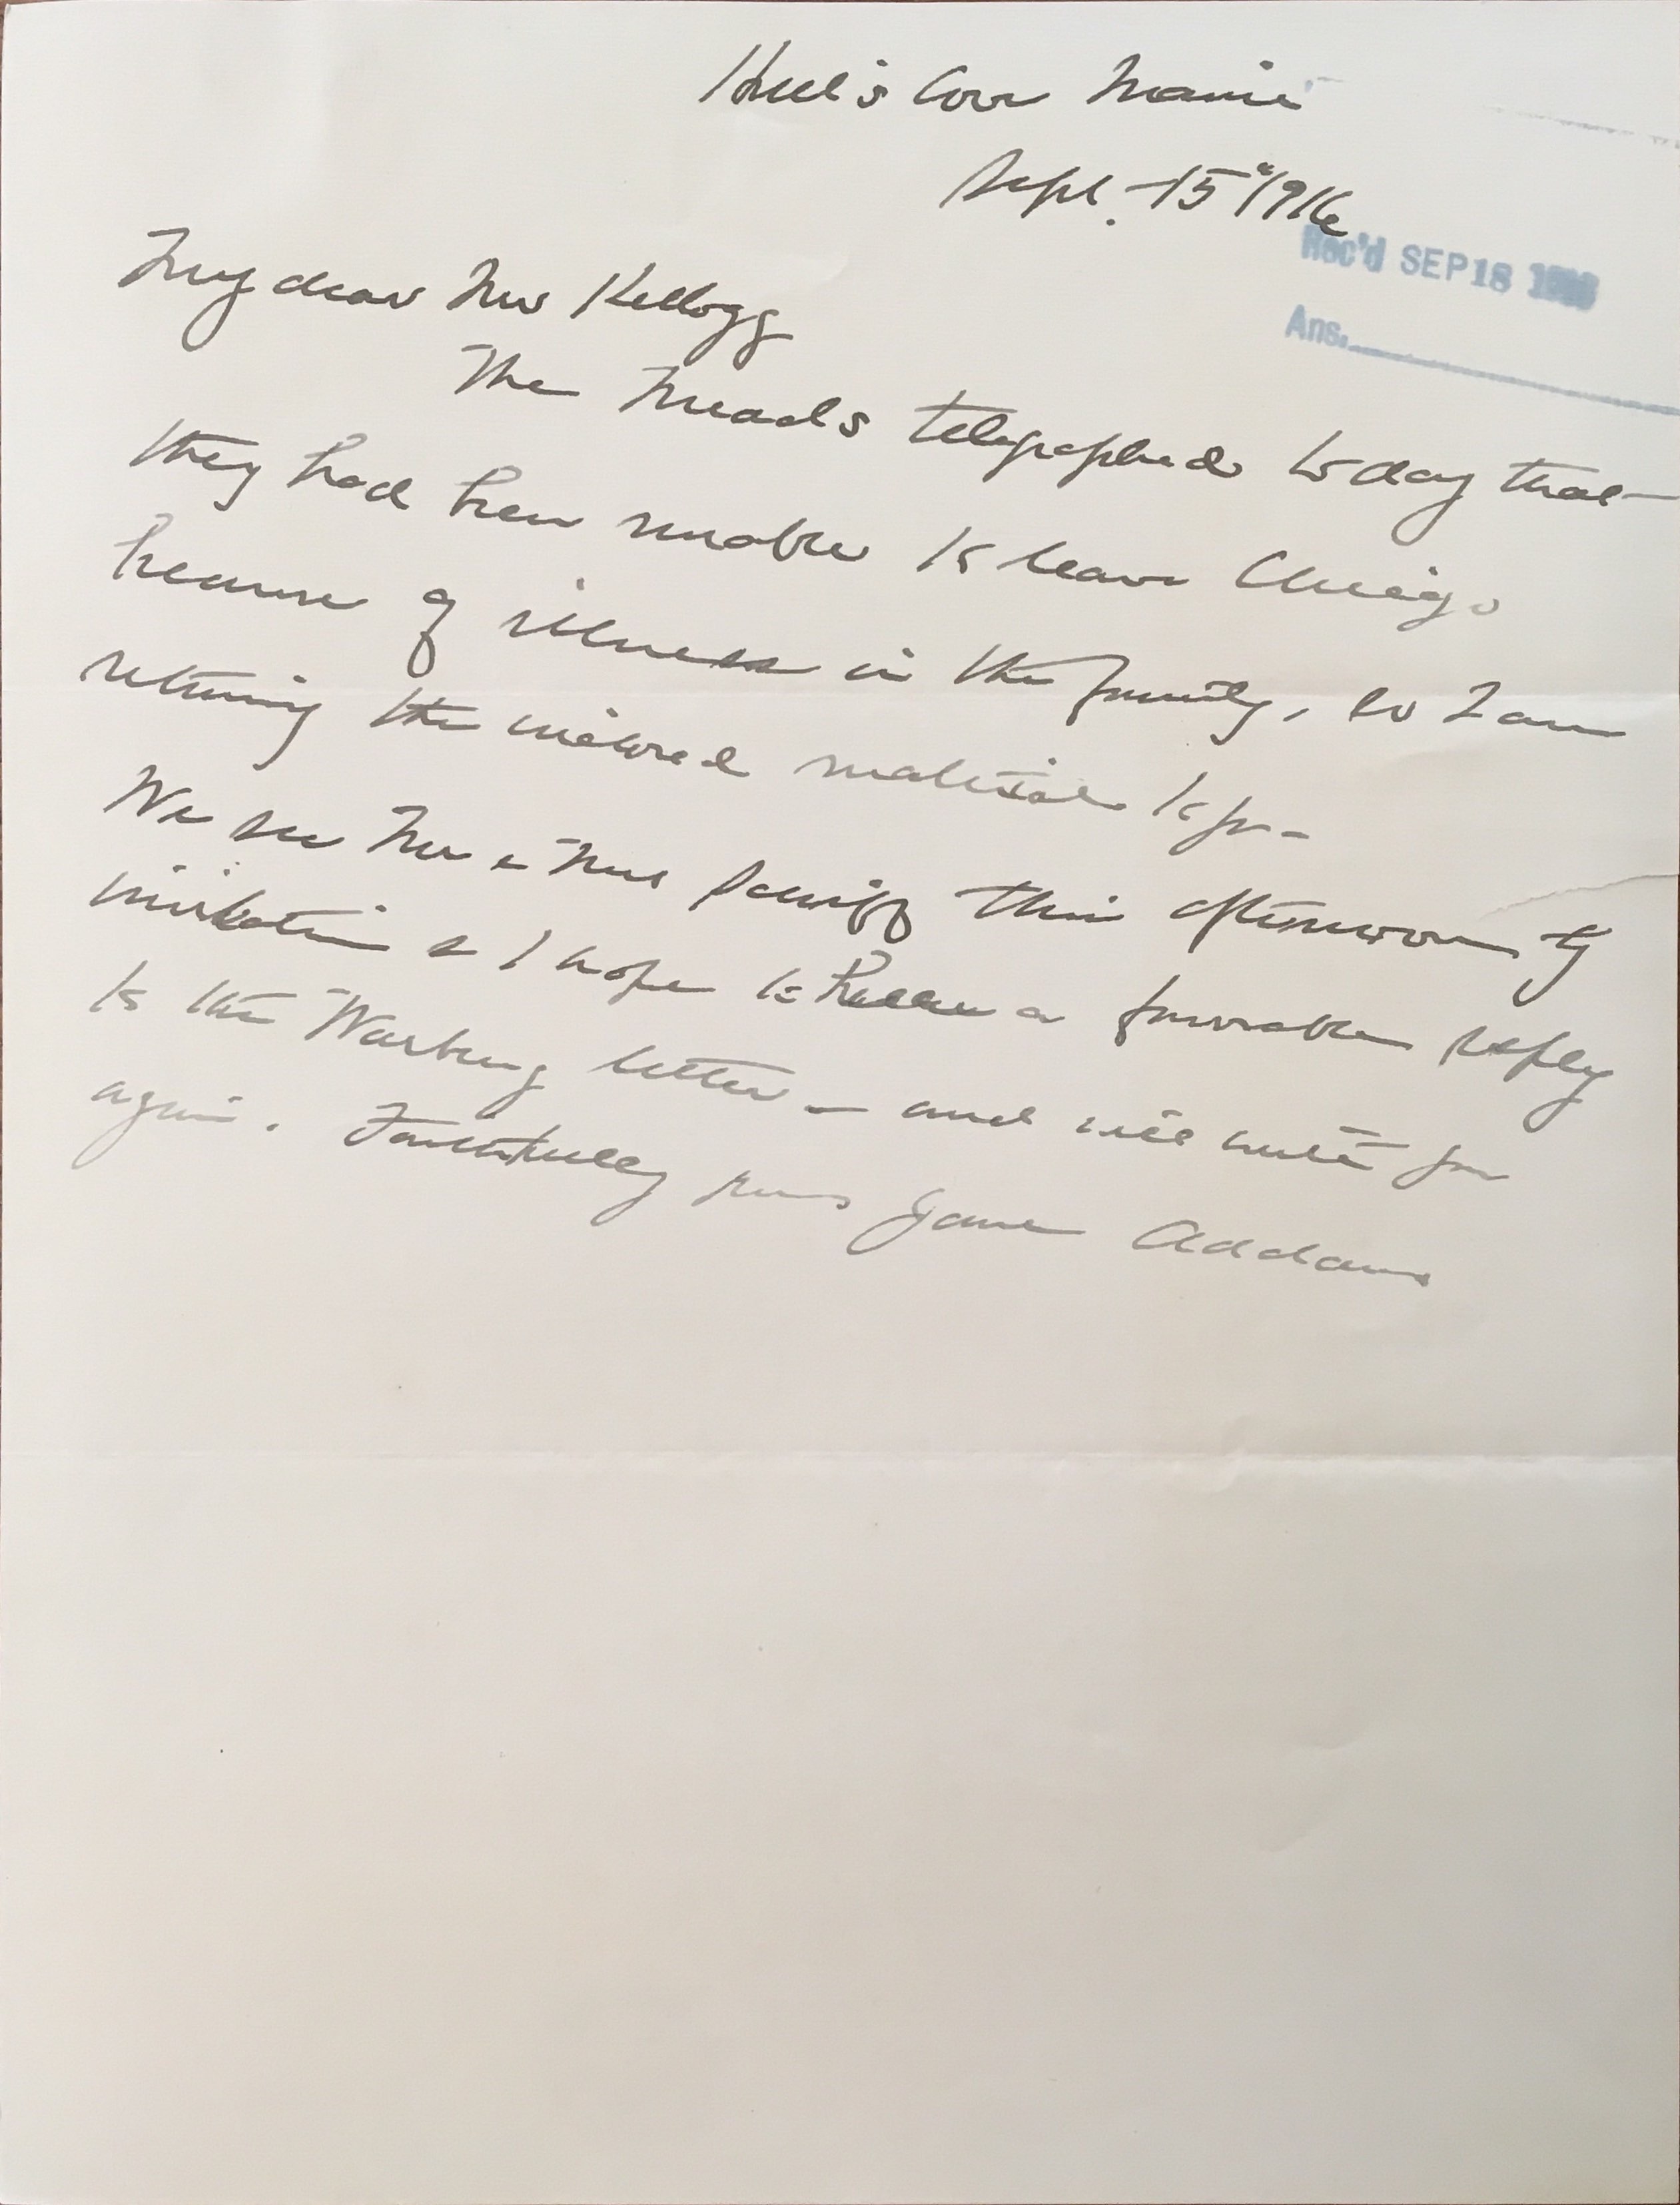 Hull's Cove Maine
Sept. 15" 1916
Rec'd SEP 18
Ans.
My dear Mr Kellogg
The Meads telegraphed to day that
they had been unable to leave Chicago
because of illness in the family, so I am
returning the enclosed material to you
We see Mr & Mrs Schiff this afternoon by
invitation & I hope to have a favorable reply
to the Warburg letter – and will write you
again. Faithfully yours Jane Addams